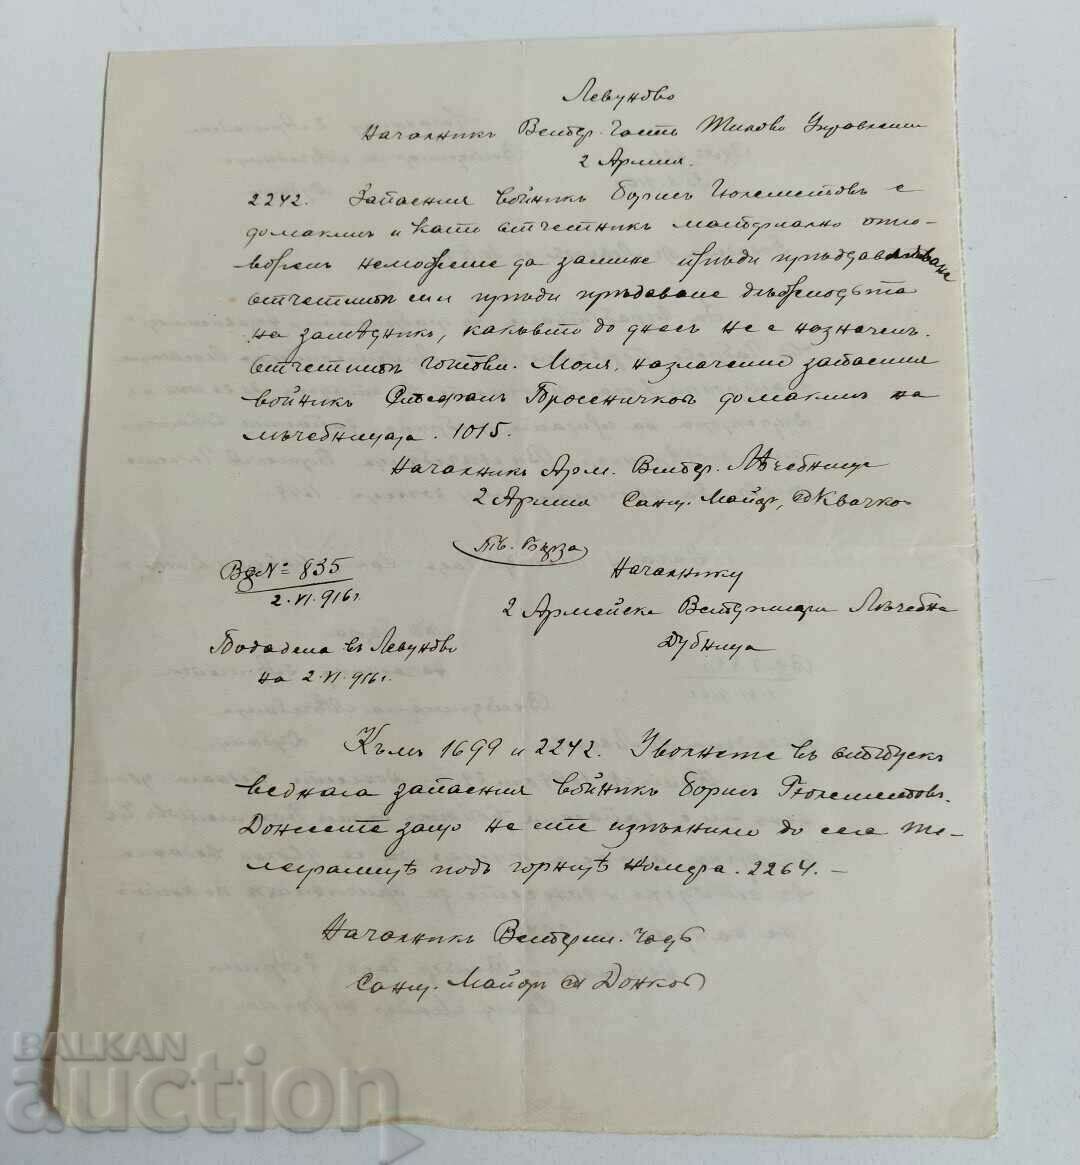 Левуново
Началникъ Ветер. Часть Тилово Управление
2 Армия.
2242. Запасния войникъ Борисъ Гюлеметовъ е
домакинъ и като отчетникъ материално отго-
воренъ неможеше да замине преди
отчетитѣ си и преди предаване длъжностьта
на замѣстникъ, какъвто до днесъ не е назначенъ.
Отчетитѣ готови. Моля, назначение запасния
войникъ Стефанъ домакинъ на
лѣчебницата. 1015.
Началникъ Арм. Ветер. Лѣчебница
2 Армия Сан. Майоръ, Квачков
Тъ. Бърза
Вх № 835
2.VI.916 г.
Началнику
2 Армейска Ветеринарна Лѣчебна
Дубница
Подадена въ Левуново
на 2.VI.916 г.
Къмъ 1699 и 2242. Уволнете въ отпускъ
веднага запасния войникъ Борисъ Гюлеметовъ.
Донесете защо не сте изпълнили до сега те-
леграмитѣ подъ горнитѣ номера. 2264. –
Началникъ Ветерин. Часть
Сан. Майоръ Донков
BALKAN
auction